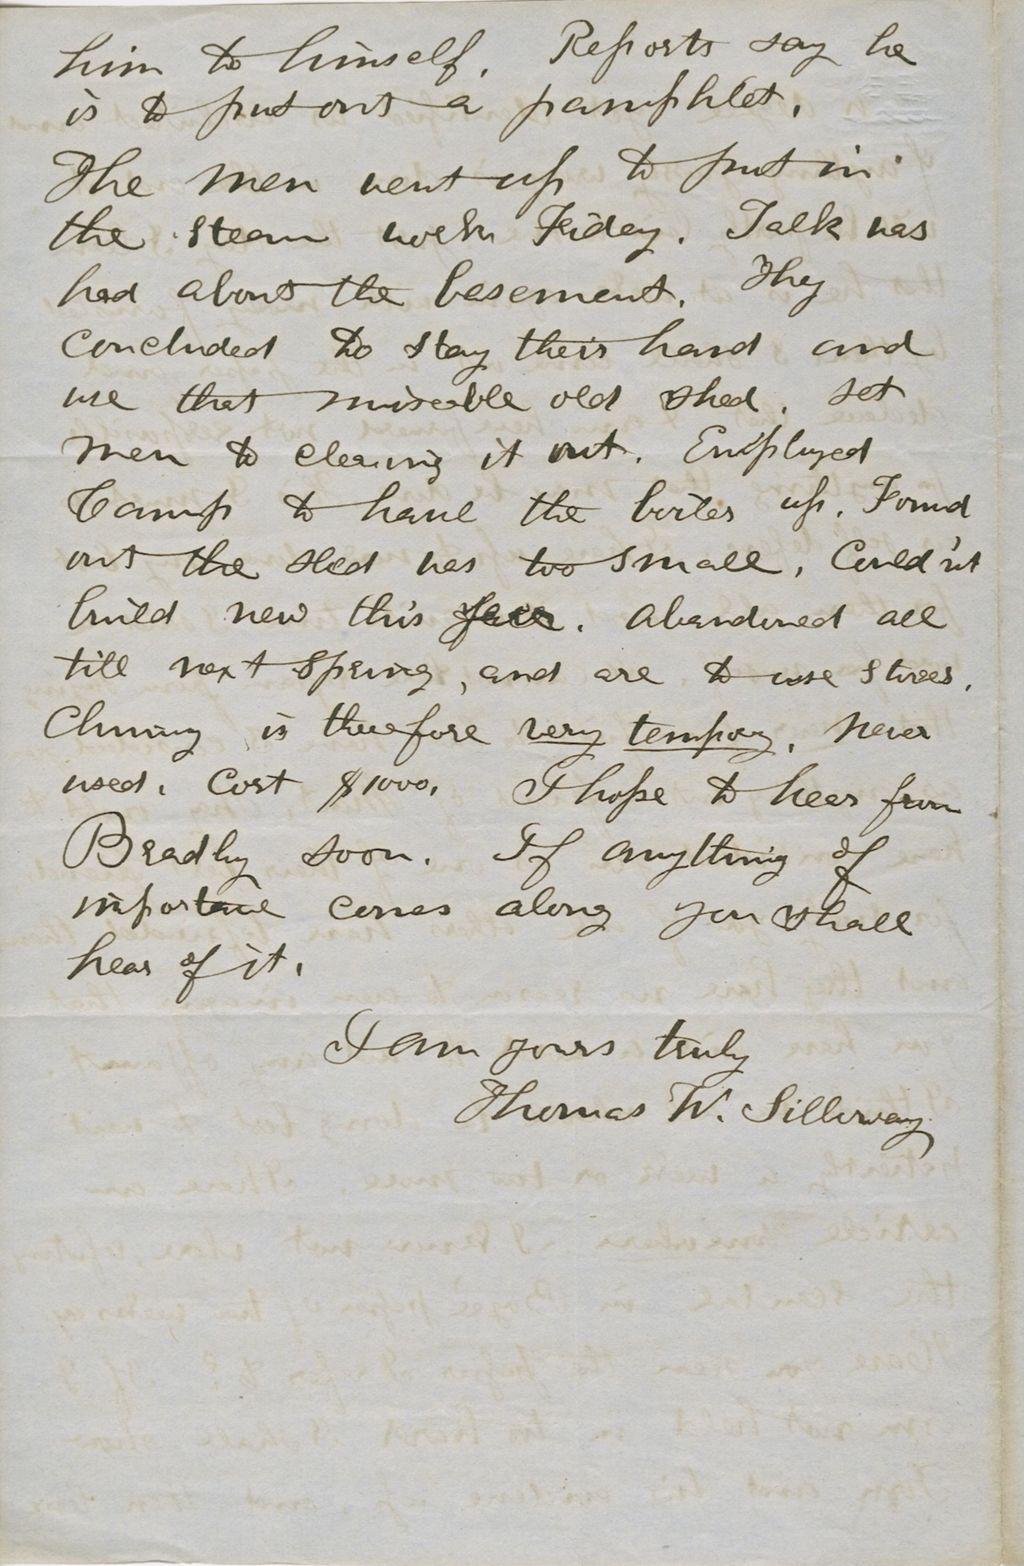 him to himself. Reports say he
is to put out a pamphlet.
The men went up to put in
the steam works Friday. Talk was
had about the basement. They
concluded to stay their hand and
use that miserble old shed. Set
men to clearing it out. Employed
Camp to haul the boiler up. Found
out the shed was too small. Could'nt
build new this year. Abandoned all
till next Spring, and are to use stoves.
Chimny is therefore very tempory. Never
used. Cost $1000. I hope to hear from
Bradley soon. If anything of
importance comes along you shall
hear of it.
I am yours truly
Thomas W. Silloway